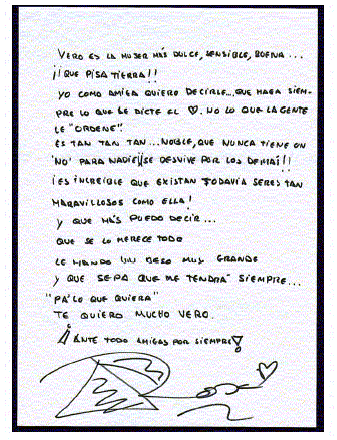 VERO ES LA MUJER MÁS DULCE, SENSIBLE, BUENA...
¡¡QUE PISA TIERRA!!
YO COMO AMIGA QUIERO DECIRLE...QUE HAGA SIEM-
PRE LO QUE LE DICTE EL ♡. NO LO QUE LA GENTE
LE "ORDENE".
ES TAN TAN TAN... NOBLE, QUE NUNCA TIENE UN
'NO' PARA NADIE ¡¡SE DESVIVE POR LOS DEMÁS!!
¡ES INCREIBLE QUE EXISTAN TODAVÍA SERES TAN
MARAVILLOSOS COMO ELLA!
Y QUE MÁS PUEDO DECIR...
QUE SE LO MERECE TODO
LE MANDO UN BESO MUY GRANDE
Y QUE SEPA QUE ME TENDRÁ SIEMPRE...
"PA'LO QUE QUIERA"
TE QUIERO MUCHO VERO.
¡ANTE TODO AMIGAS POR SIEMPRE!